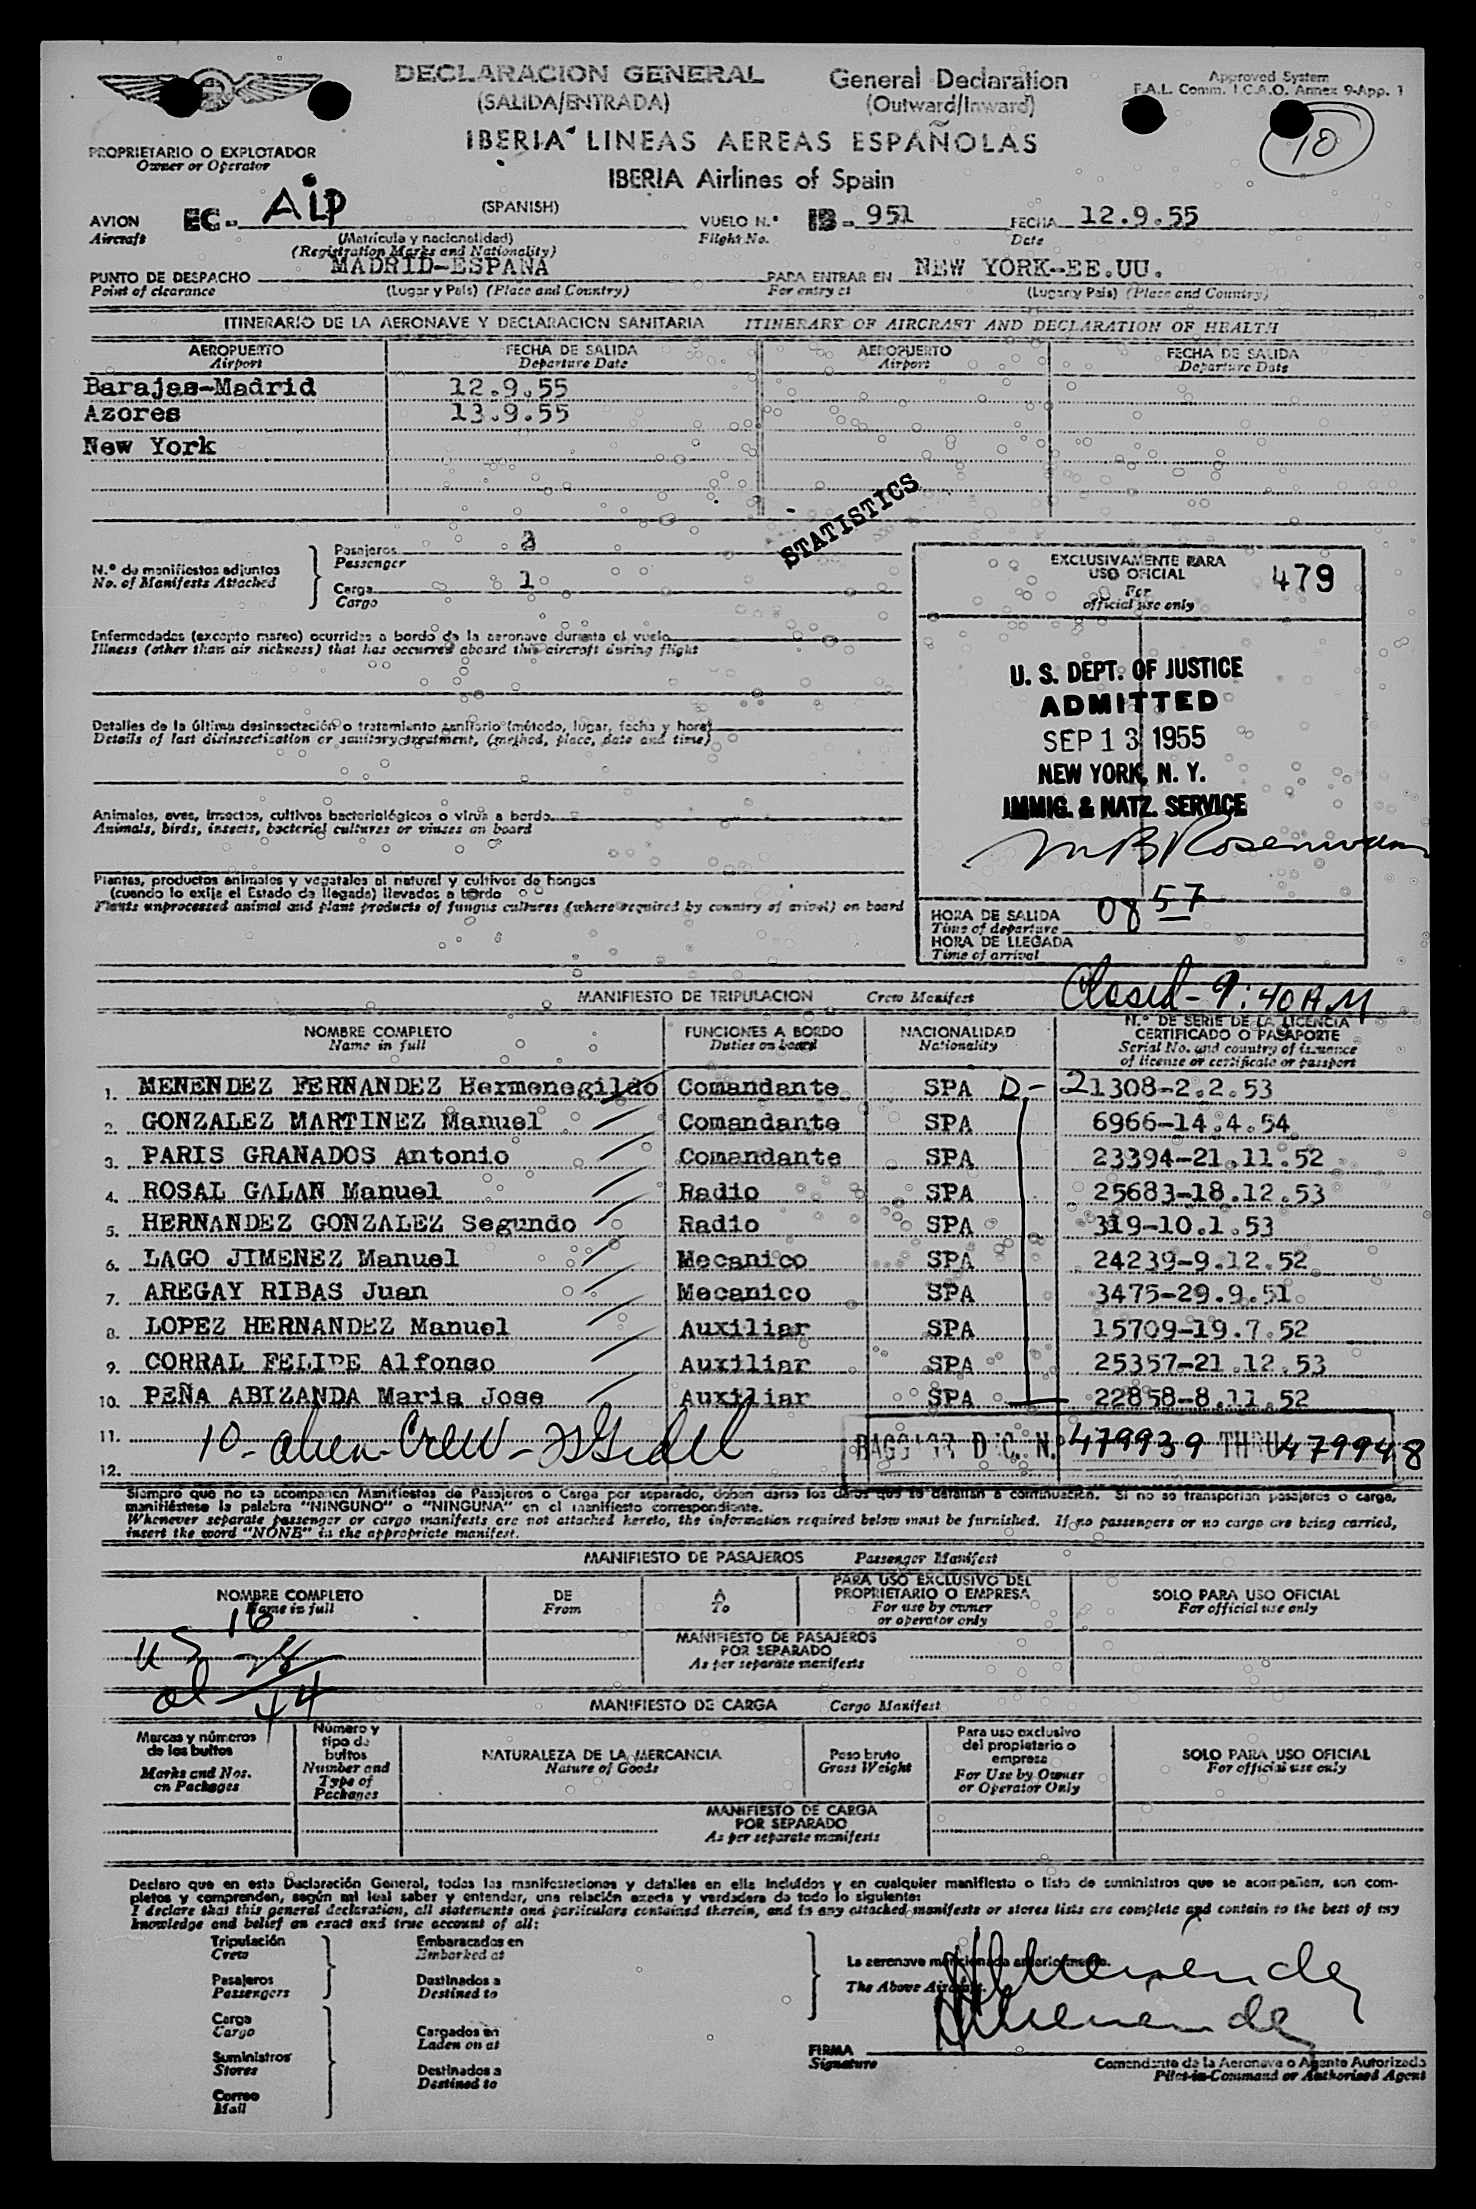 DECLARACION GENERAL General Declaration
(SALIDA/ENTRADA) (Outward/Inward)
Approved System
F.A.L. Comm. I.C.A.O. Annex 9-App. 1
10
IBERIA LINEAS AEREAS ESPAÑOLAS
IBERIA Airlines of Spain
PROPRIETARIO O EXPLOTADOR
Owner or Operator
(SPANISH)
AVION EC- AIP VUELO N.º IB-951 FECHA 12.9.55
Aircraft (Matrícula y nacionalidad) Flight No. Date
(Registration Marks and Nationality)
PUNTO DE DESPACHO MADRID-ESPAÑA PARA ENTRAR EN NEW YORK-EE.UU.
Point of clearance (Lugar y País) (Place and Country) For entry at (Lugar y País) (Place and Country)
ITINERARIO DE LA AERONAVE Y DECLARACION SANITARIA ITINERARY OF AIRCRAFT AND DECLARATION OF HEALTH
AEROPUERTO FECHA DE SALIDA AEROPUERTO FECHA DE SALIDA
Airport Departure Date Airport Departure Date
Barajas-Madrid 12.9.55
Azores 13.9.55
New York
STATISTICS
N.º de manifiestos adjuntos
No. of Manifests Attached
Pasajeros
Passenger
Carga 1
Cargo
Enfermedades (excepto mareo) ocurridas a bordo de la aeronave durante el vuelo
Illness (other than air sickness) that has occurred aboard this aircraft during flight
Detalles de la última desinsectación o tratamiento sanitario (método, lugar, fecha y hora)
Details of last disinsectization or sanitary treatment, (method, place, date and time)
Animales, aves, insectos, cultivos bacteriológicos o virus a bordo
Animals, birds, insects, bacterial cultures or viuses on board
Plantas, productos animales y vegetales al natural y cultivos de hongos
(cuando lo exija el Estado de llegada) llevados a bordo
Plants unprocessed animal and plant products of fungus cultures (where required by country of arivel) on board
EXCLUSIVAMENTE PARA
USO OFICIAL 479
For
official use only
U. S. DEPT. OF JUSTICE
ADMITTED
SEP 13 1955
NEW YORK, N. Y.
IMMIG. & NATZ. SERVICE
HORA DE SALIDA 0857
Time of departure
HORA DE LLEGADA
Time of arrival
Closed - 9:40 A.M
MANIFIESTO DE TRIPULACION Crew Manifest
NOMBRE COMPLETO FUNCIONES A BORDO NACIONALIDAD N.º DE SERIE DE LA LICENCIA
CERTIFICADO O PASAPORTE
Name in full Duties on board Nationality Serial No. and country of issuance
of license or certificate or passport
1. MENENDEZ FERNANDEZ Hermenegildo Comandante SPA D- 21308-2.2.53
2. GONZALEZ MARTINEZ Manuel Comandante SPA 6966-14.4.54
3. PARIS GRANADOS Antonio Comandante SPA 23394-21.11.52
4. ROSAL GALAN Manuel Radio SPA 25683-18.12.53
5. HERNANDEZ GONZALEZ Segundo Radio SPA 319-10.1.53
6. LAGO JIMENEZ Manuel Mecanico SPA 24239-9.12.52
7. AREGAY RIBAS Juan Mecanico SPA 3475-29.9.51
8. LOPEZ HERNANDEZ Manuel Auxiliar SPA 15709-19.7.52
9. CORRAL FELIPE Alfonso Auxiliar SPA 25357-21.12.53
10. PEÑA ABIZANDA Maria Jose Auxiliar SPA 22858-8.11.52
11. 10 - alien Crew - BAGGAGE DEC. N.º 479939 THRU 479948
12.
Siempre que no se acompañen Manifiestos de Pasajeros o Carga por separado, deben darse los datos que se detallan a continuación. Si no se transportan pasajeros o carga,
manifiéstese la palabra "NINGUNO" o "NINGUNA" en el manifiesto correspondiente.
Whenever separate passenger or cargo manifests are not attached hereto, the information required below must be furnished. If no passengers or no cargo are being carried,
insert the word "NONE" in the appropriate manifest.
MANIFIESTO DE PASAJEROS Passenger Manifest
NOMBRE COMPLETO DE A PARA USO EXCLUSIVO DEL
PROPRIETARIO O EMPRESA SOLO PARA USO OFICIAL
Name in full From To For use by owner
or operator only For official use only
16
US
al 44
MANIFIESTO DE PASAJEROS
POR SEPARADO
As per separate manifests
MANIFIESTO DE CARGA Cargo Manifest
Marcas y números
de los bultos
Marks and Nos.
on Packages
Número y
tipo de
bultos
Number and
Type of
Packages
NATURALEZA DE LA MERCANCIA
Nature of Goods
Peso bruto
Gross Weight
Para uso exclusivo
del propietario o
empresa
For Use by Owner
or Operator Only
SOLO PARA USO OFICIAL
For official use only
MANIFIESTO DE CARGA
POR SEPARADO
As per separate manifests
Declaro que en esta Declaración General, todas las manifestaciones y detalles en ella incluídos y en cualquier manifiesto o lista de suministros que se acompañen, son com-
pletos y comprenden, según mi leal saber y entender, una relación exacta y verdadera de todo lo siguiente:
I declare that this general declaration, all statements and particulars contained therein, and in any attached manifests or stores lists are complete and contain to the best of my
knowledge and belief an exact and true account of all:
Tripulación
Crew
Pasajeros
Passengers
Carga
Cargo
Suministros
Stores
Correo
Mail
Embaracados en
Embarked at
Destinados a
Destined to
Cargados en
Laden on at
Destinados a
Destined to
La aeronave mencionada anteriormente.
The Above Aircraft.
FIRMA
Signature
Comandante de la Aeronave o Agente Autorizado
Pilot-in-Command or Authorised Agent